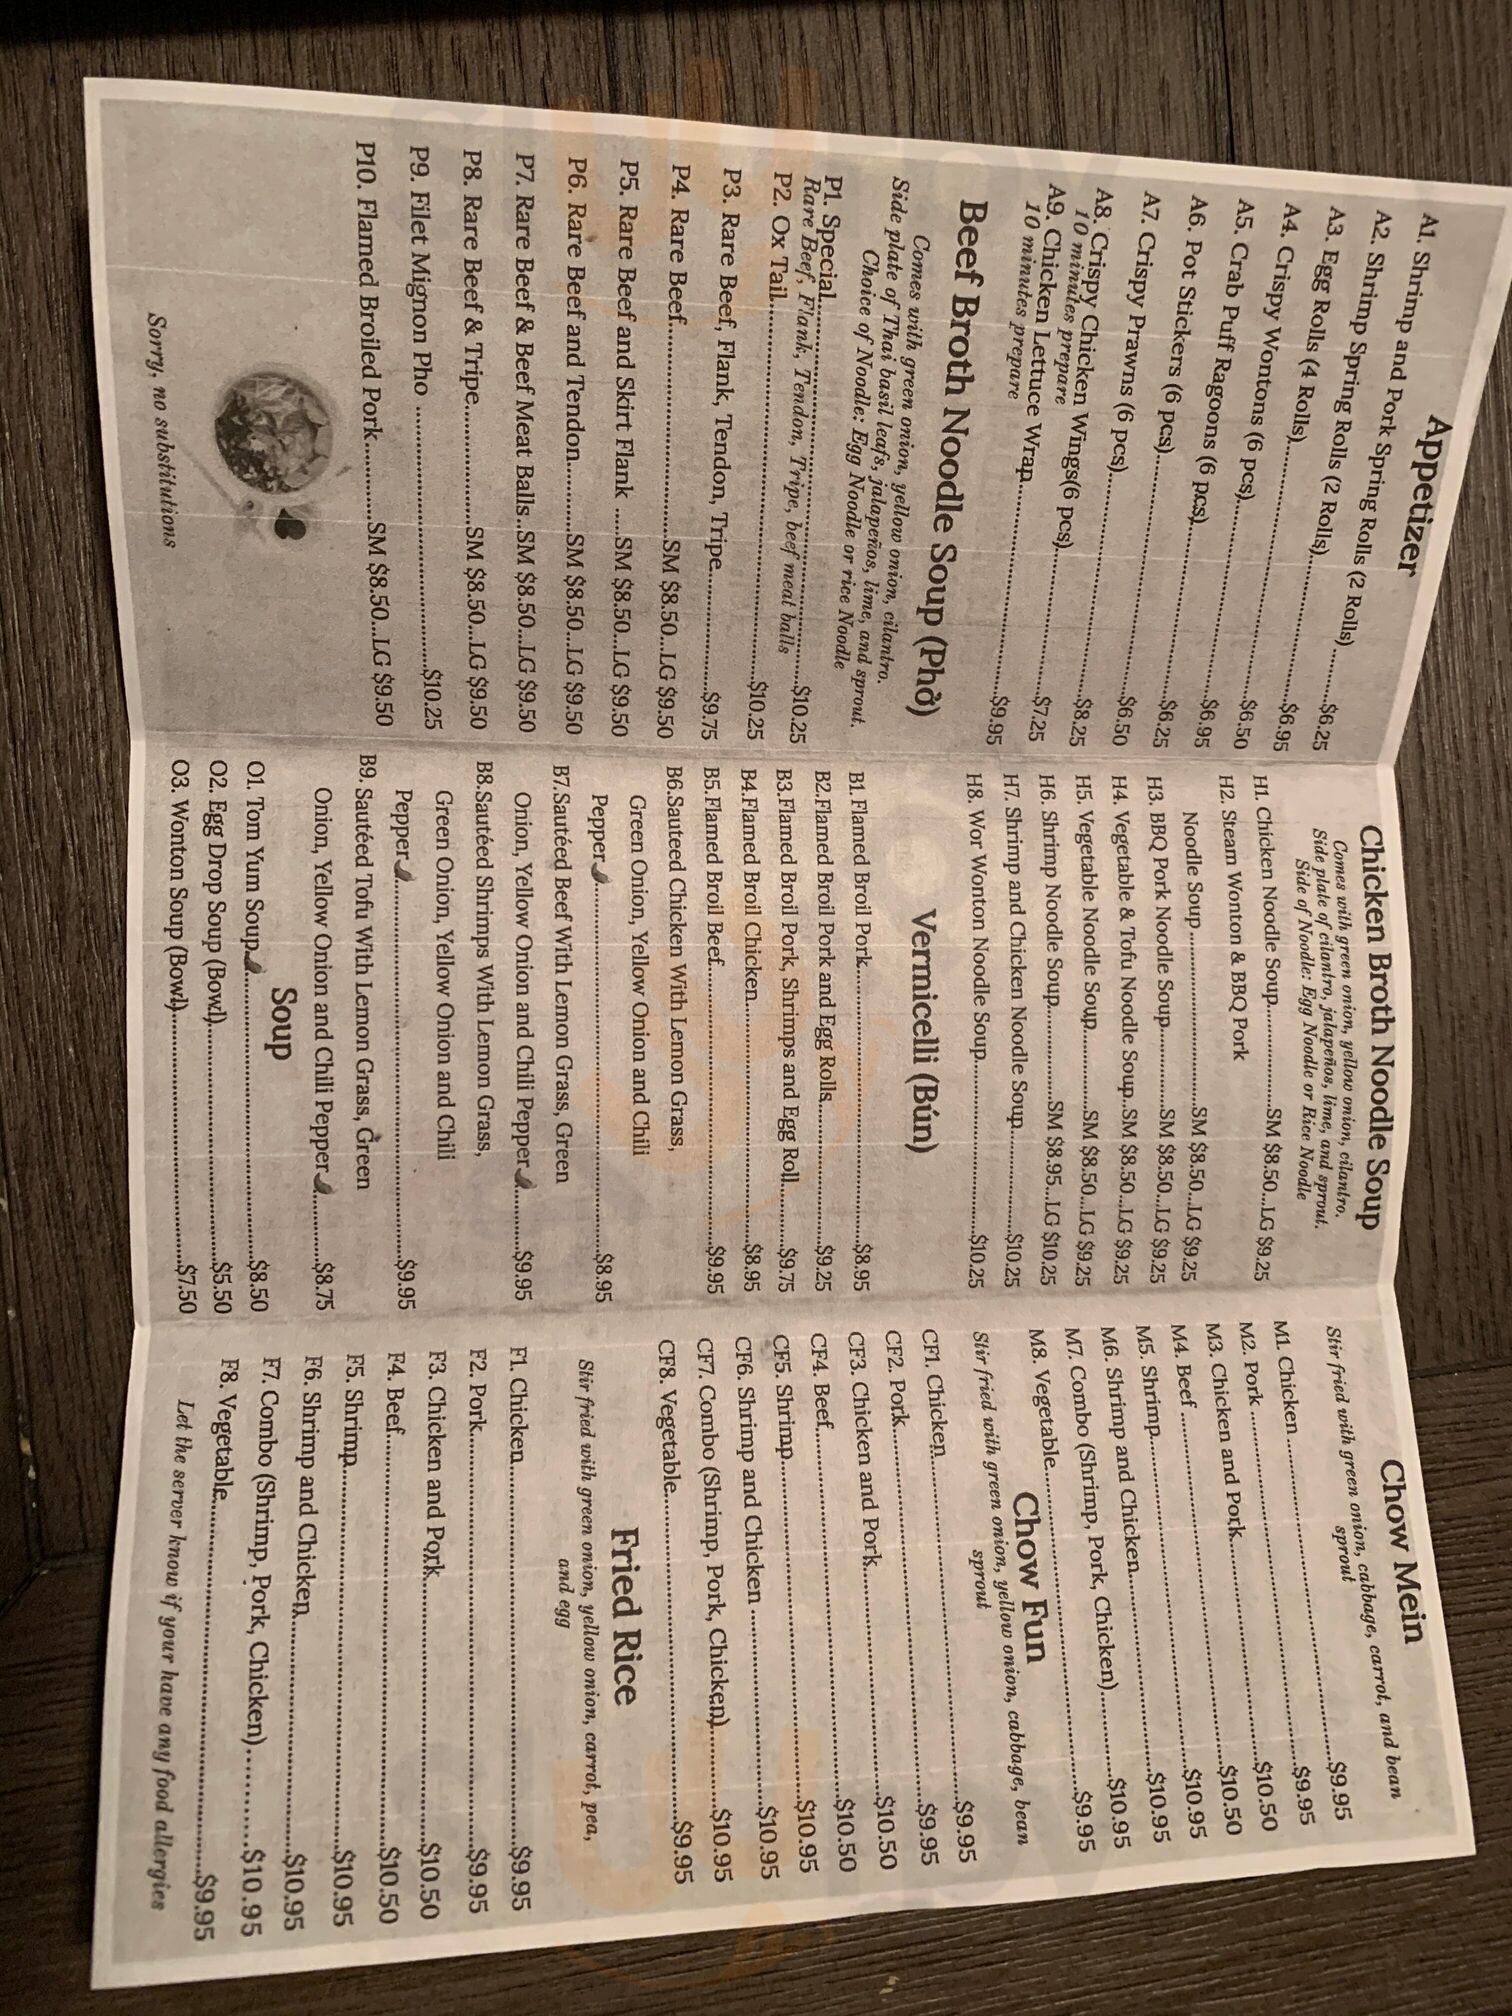 Appetizer
A1. Shrimp and Pork Spring Rolls (2 Rolls)........$6.25
A2. Shrimp Spring Rolls (2 Rolls)........$6.95
A3. Egg Rolls (4 Rolls)........$6.50
A4. Crispy Wontons (6 pcs)........$6.95
A5. Crab Puff Ragoons (6 pcs)........$6.25
A6. Pot Stickers (6 pcs)........$6.50
A7. Crispy Prawns (6 pcs)........$8.25
A8. Crispy Chicken Wings(6 pcs)........$7.25
10 minutes prepare
A9. Chicken Lettuce Wrap........$9.95
10 minutes prepare
Beef Broth Noodle Soup (Phở)
Comes with green onion, yellow onion, cilantro.
Side plate of Thai basil leafs, jalapeños, lime, and sprout.
Choice of Noodle: Egg Noodle or rice Noodle
P1. Special........$10.25
Rare Beef, Flank, Tendon, Tripe, beef meat balls
P2. Ox Tail........$10.25
P3. Rare Beef, Flank, Tendon, Tripe........$9.75
P4. Rare Beef........SM $8.50...LG $9.50
P5. Rare Beef and Skirt Flank .....SM $8.50...LG $9.50
P6. Rare Beef and Tendon........SM $8.50...LG $9.50
P7. Rare Beef & Beef Meat Balls..SM $8.50...LG $9.50
P8. Rare Beef & Tripe........SM $8.50...LG $9.50
P9. Filet Mignon Pho ........$10.25
P10. Flamed Broiled Pork........SM $8.50...LG $9.50
Sorry, no substitutions
Chicken Broth Noodle Soup
Comes with green onion, yellow onion, cilantro.
Side plate of cilantro, jalapeños, lime, and sprout.
Side of Noodle: Egg Noodle or Rice Noodle
H1. Chicken Noodle Soup........SM $8.50...LG $9.25
H2. Steam Wonton & BBQ Pork
Noodle Soup........SM $8.50...LG $9.25
H3. BBQ Pork Noodle Soup........SM $8.50...LG $9.25
H4. Vegetable & Tofu Noodle Soup..SM $8.50...LG $9.25
H5. Vegetable Noodle Soup........SM $8.50...LG $9.25
H6. Shrimp Noodle Soup........SM $8.95...LG $10.25
H7. Shrimp and Chicken Noodle Soup........$10.25
H8. Wor Wonton Noodle Soup........$10.25
Vermicelli (Bún)
B1. Flamed Broil Pork........$8.95
B2.Flamed Broil Pork and Egg Rolls........$9.25
B3.Flamed Broil Pork, Shrimps and Egg Roll........$9.75
B4.Flamed Broil Chicken........$8.95
B5.Flamed Broil Beef........$9.95
B6.Sauteed Chicken With Lemon Grass,
Green Onion, Yellow Onion and Chili
Pepper........$8.95
B7.Sautéed Beef With Lemon Grass, Green
Onion, Yellow Onion and Chili Pepper........$9.95
B8.Sautéed Shrimps With Lemon Grass,
Green Onion, Yellow Onion and Chili
Pepper........$9.95
B9. Sautéed Tofu With Lemon Grass, Green
Onion, Yellow Onion and Chili Pepper........$8.75
Soup
O1. Tom Yum Soup........$8.50
O2. Egg Drop Soup (Bowl)........$5.50
O3. Wonton Soup (Bowl)........$7.50
Chow Mein
Stir fried with green onion, cabbage, carrot, and bean
sprout
M1. Chicken........$9.95
M2. Pork ........$9.95
M3. Chicken and Pork........$10.50
M4. Beef ........$10.50
M5. Shrimp........$10.95
M6. Shrimp and Chicken........$10.95
M7. Combo (Shrimp, Pork, Chicken)........$10.95
M8. Vegetable........$9.95
Chow Fun
Stir fried with green onion, yellow onion, cabbage, bean
sprout
CF1. Chicken........$9.95
CF2. Pork........$9.95
CF3. Chicken and Pork........$10.50
CF4. Beef........$10.50
CF5. Shrimp........$10.95
CF6. Shrimp and Chicken ........$10.95
CF7. Combo (Shrimp, Pork, Chicken)........$10.95
CF8. Vegetable........$9.95
Fried Rice
Stir fried with green onion, yellow onion, carrot, pea,
and egg
F1. Chicken........$9.95
F2. Pork........$9.95
F3. Chicken and Pork........$10.50
F4. Beef........$10.50
F5. Shrimp........$10.95
F6. Shrimp and Chicken........$10.95
F7. Combo (Shrimp, Pork, Chicken)........$10.95
F8. Vegetable........$9.95
Let the server know if your have any food allergies